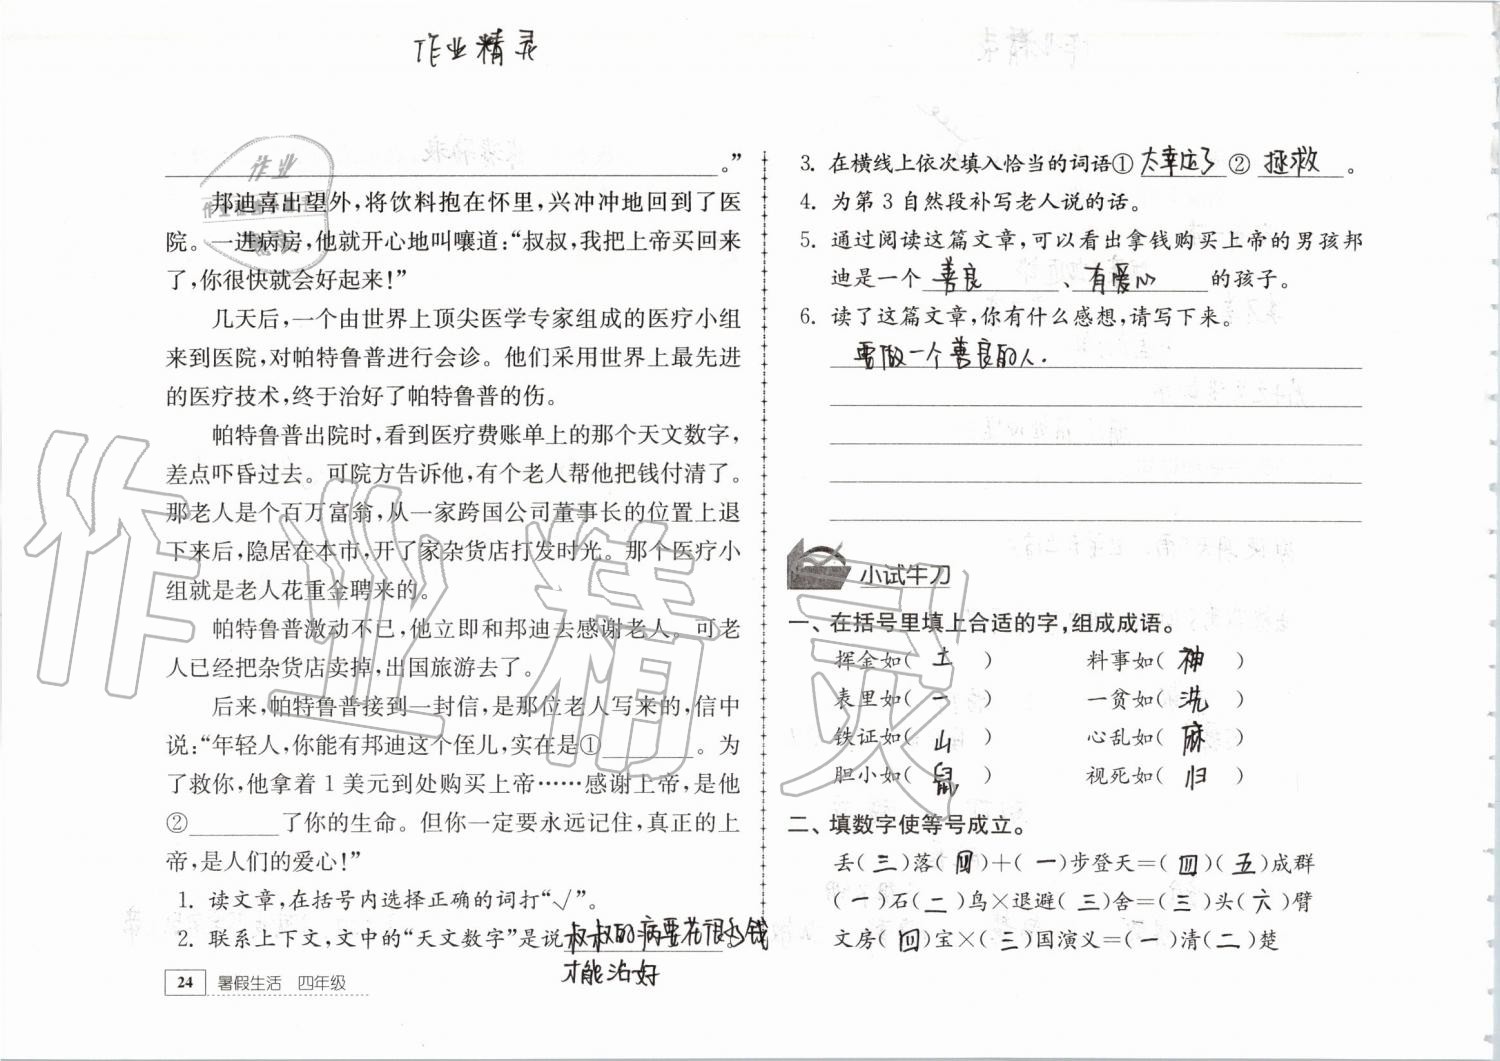 作业精灵
。”
邦迪喜出望外,将饮料抱在怀里,兴冲冲地回到了医
院。一进病房,他就开心地叫嚷道:“叔叔,我把上帝买回来
了,你很快就会好起来!”
几天后,一个由世界上顶尖医学专家组成的医疗小组
来到医院,对帕特鲁普进行会诊。他们采用世界上最先进
的医疗技术,终于治好了帕特鲁普的伤。
帕特鲁普出院时,看到医疗费账单上的那个天文数字,
差点吓昏过去。可院方告诉他,有个老人帮他把钱付清了。
那老人是个百万富翁,从一家跨国公司董事长的位置上退
下来后,隐居在本市,开了家杂货店打发时光。那个医疗小
组就是老人花重金聘来的。
帕特鲁普激动不已,他立即和邦迪去感谢老人。可老
人已经把杂货店卖掉,出国旅游去了。
后来,帕特鲁普接到一封信,是那位老人写来的,信中
说:“年轻人,你能有邦迪这个侄儿,实在是①________。为
了救你,他拿着 1 美元到处购买上帝……感谢上帝,是他
②________了你的生命。但你一定要永远记住,真正的上
帝,是人们的爱心!”
1. 读文章,在括号内选择正确的词打“√”。
2. 联系上下文,文中的“天文数字”是说叔叔的病要花很多钱
才能治好
24 暑假生活 四年级
3. 在横线上依次填入恰当的词语① 太幸运了 ② 拯救 。
4. 为第 3 自然段补写老人说的话。
5. 通过阅读这篇文章,可以看出拿钱购买上帝的男孩邦
迪是一个 善良 、 有爱心 的孩子。
6. 读了这篇文章,你有什么感想,请写下来。
要做一个善良的人.
小试牛刀
一、在括号里填上合适的字,组成成语。
挥金如( 土 ) 料事如( 神 )
表里如( 一 ) 一贫如( 洗 )
铁证如( 山 ) 心乱如( 麻 )
胆小如( 鼠 ) 视死如( 归 )
二、填数字使等号成立。
丢(三)落(四)+(一)步登天=(四)(五)成群
(一)石(二)鸟×退避(三)舍=(三)头(六)臂
文房(四)宝×(三)国演义=(一)清(二)楚
作业精灵